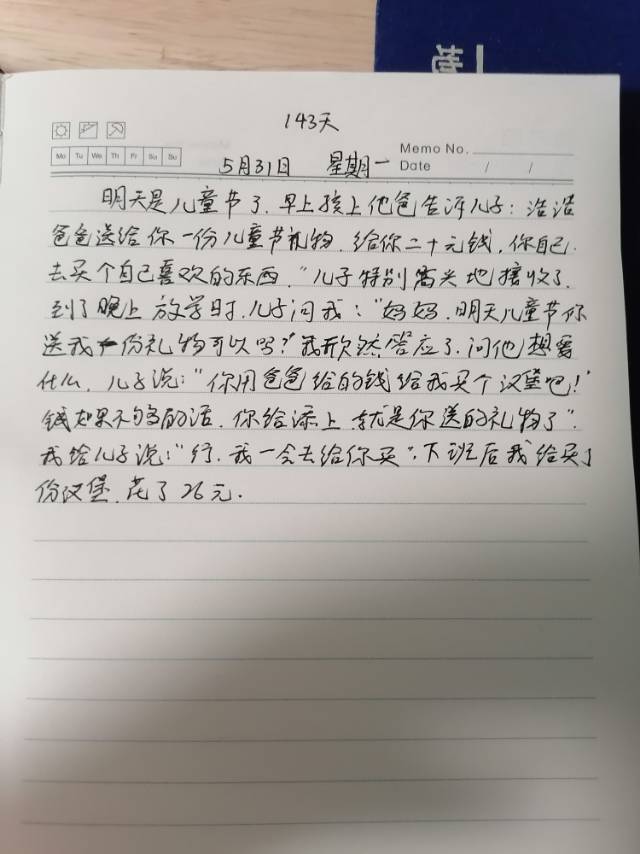 143天
Memo No.
Mo Tu We Th Fr Sa Su
5月31日 星期一 Date / /
明天是儿童节了.早上孩上他爸告诉儿子:浩浩
爸爸送给你一份儿童节礼物.给你二十元钱,你自己
去买个自己喜欢的东西."儿子特别高兴地接收了.
到了晚上放学时,儿子问我:"妈妈.明天儿童节你
送我一份礼物可以吗?"我欣然答应了.问他想要
什么.儿子说:"你用爸爸给的钱给我买个汉堡吧!
钱如果不够的话.你给添上就是你送的礼物了".
我给儿子说:"行.我一会去给你买".下班后我给买了
份汉堡.花了26元.